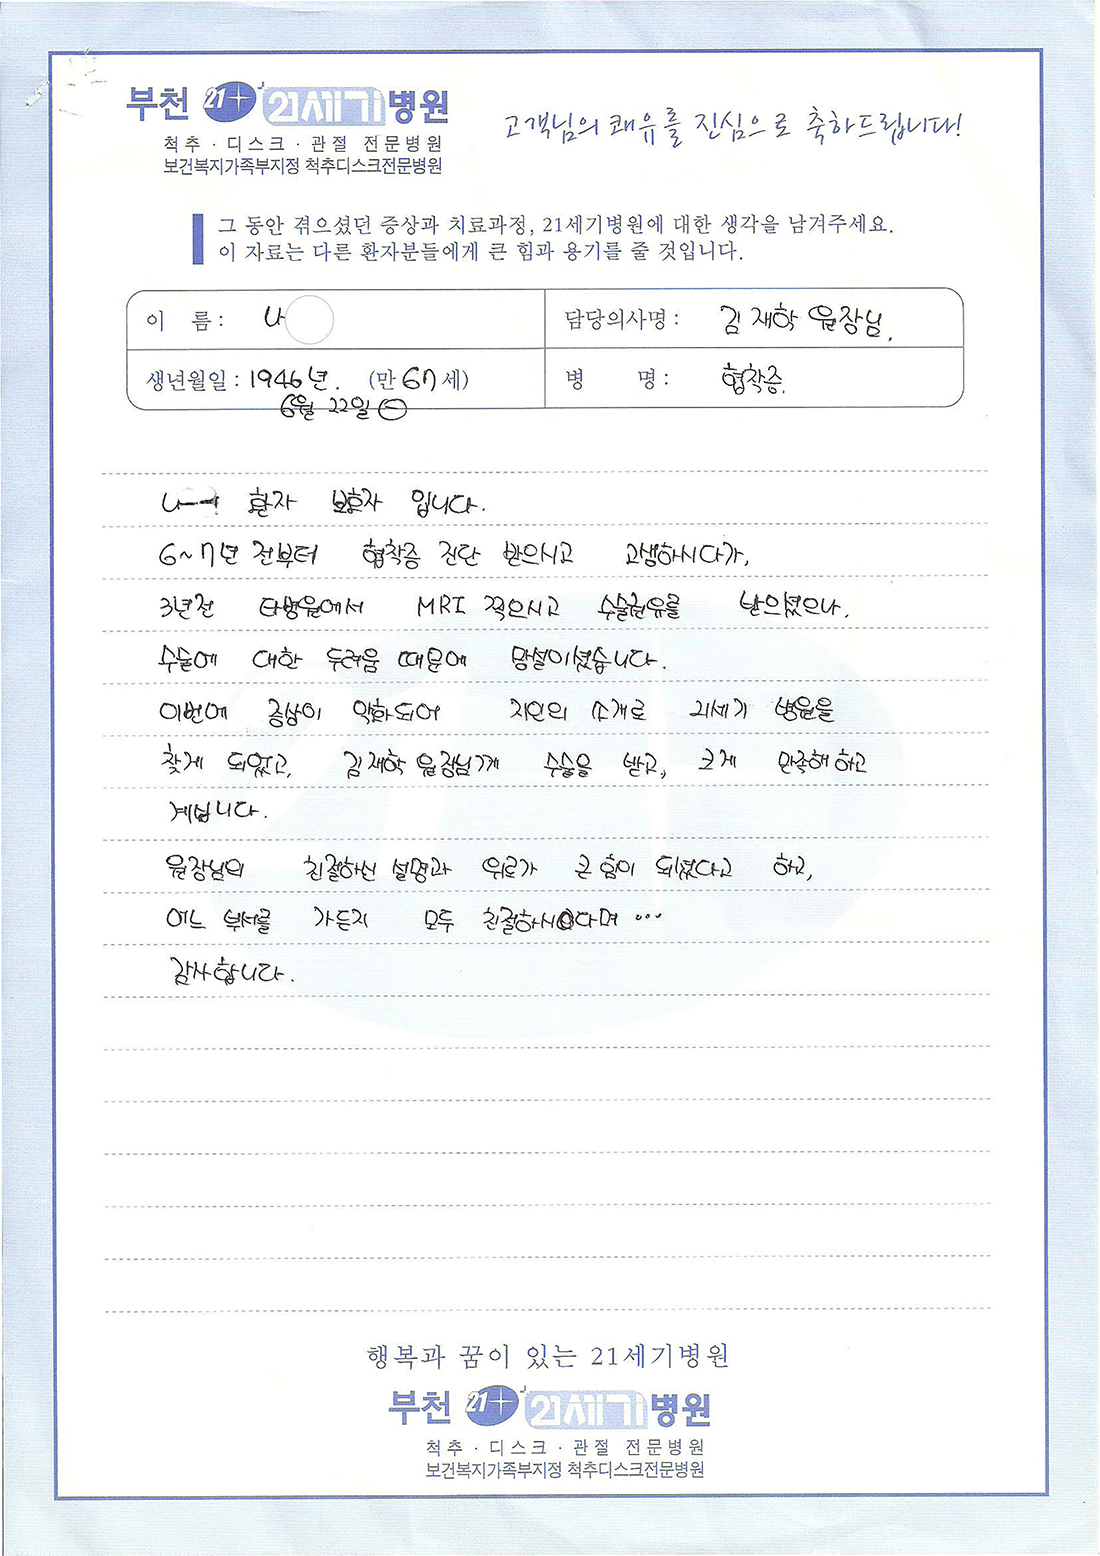 부천 21+ 21세기병원
척추 · 디스크 · 관절 전문병원
보건복지가족부지정 척추디스크전문병원
고객님의 쾌유를 진심으로 축하드립니다!
그 동안 겪으셨던 증상과 치료과정, 21세기병원에 대한 생각을 남겨주세요.
이 자료는 다른 환자분들에게 큰 힘과 용기를 줄 것입니다.
이 름 : 나
담당의사명 : 김재학 원장님.
생년월일 : 1946년. (만 67 세)
6월 22일 ㊀
병 명 : 협착증.
나 환자 보호자 입니다.
6~7년 전부터 협착증 진단 받으시고 고생하시다가,
3년전 타병원에서 MRI 찍으시고 수술권유를 받으셨으나,
수술에 대한 두려움 때문에 망설이셨습니다.
이번에 증상이 악화되어 지인의 소개로 21세기 병원을
찾게 되었고, 김재학 원장님께 수술을 받고, 크게 만족해 하고
계십니다.
원장님의 친절하신 설명과 위로가 큰 힘이 되셨다고 하고,
어느 부서를 가든지 모두 친절하시다며 ···
감사합니다.
행복과 꿈이 있는 21세기병원
부천 21+ 21세기병원
척추 · 디스크 · 관절 전문병원
보건복지가족부지정 척추디스크전문병원